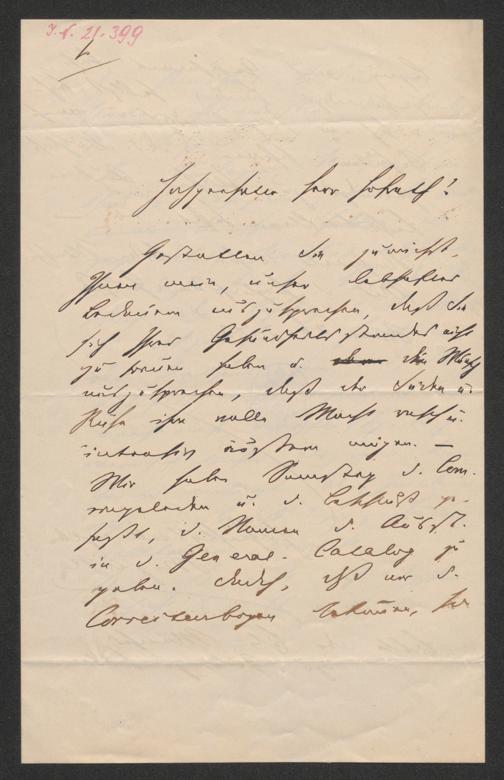 I.N. 21.399
Hochgeehrter Herr Hofrath!
Gestatten Sie zunächst,
Ihnen mein, unser lebhaftes
Bedauern auszusprechen, daß Sie
sich Ihres Gesundheitszustandes nicht
zu freuen haben u. den Wunsch
auszusprechen, daß der Süden u.
Ruhe ihre volle Macht rasch u.
intensiv äußern mögen. —
Wir haben Samstag d. Com.
eingeladen u. d. Beschluß ge-
faßt, d. Namen d. Ausst.
in d. General-Catalog zu
geben. Doch, daß wir d.
Correcturbogen bekamen,